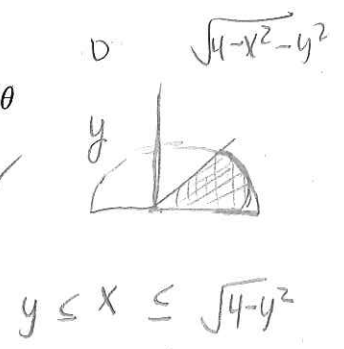 D √(4-x²-y²)
θ
y
y ≤ x ≤ √(4-y²)